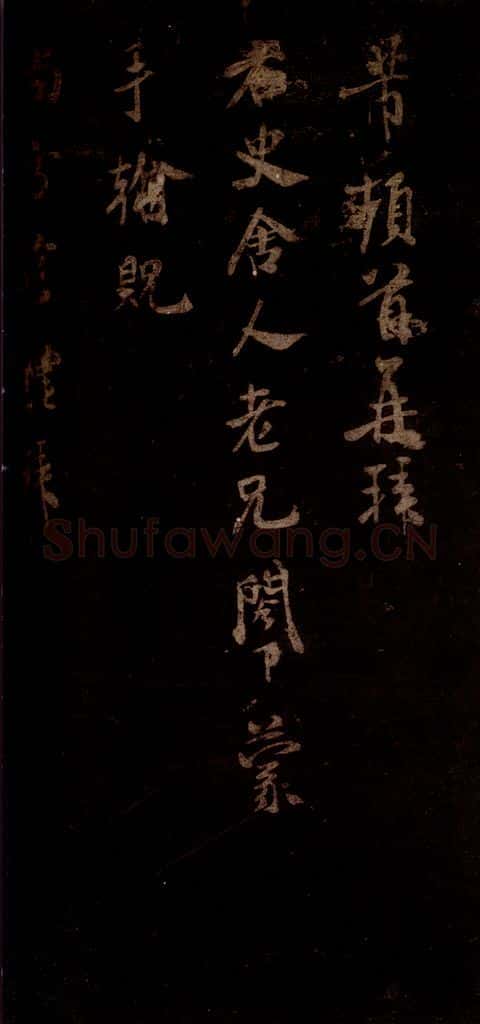 芾頓首再拜
右史舍人老兄閤下蒙
手翰貺
Shufawang.CN